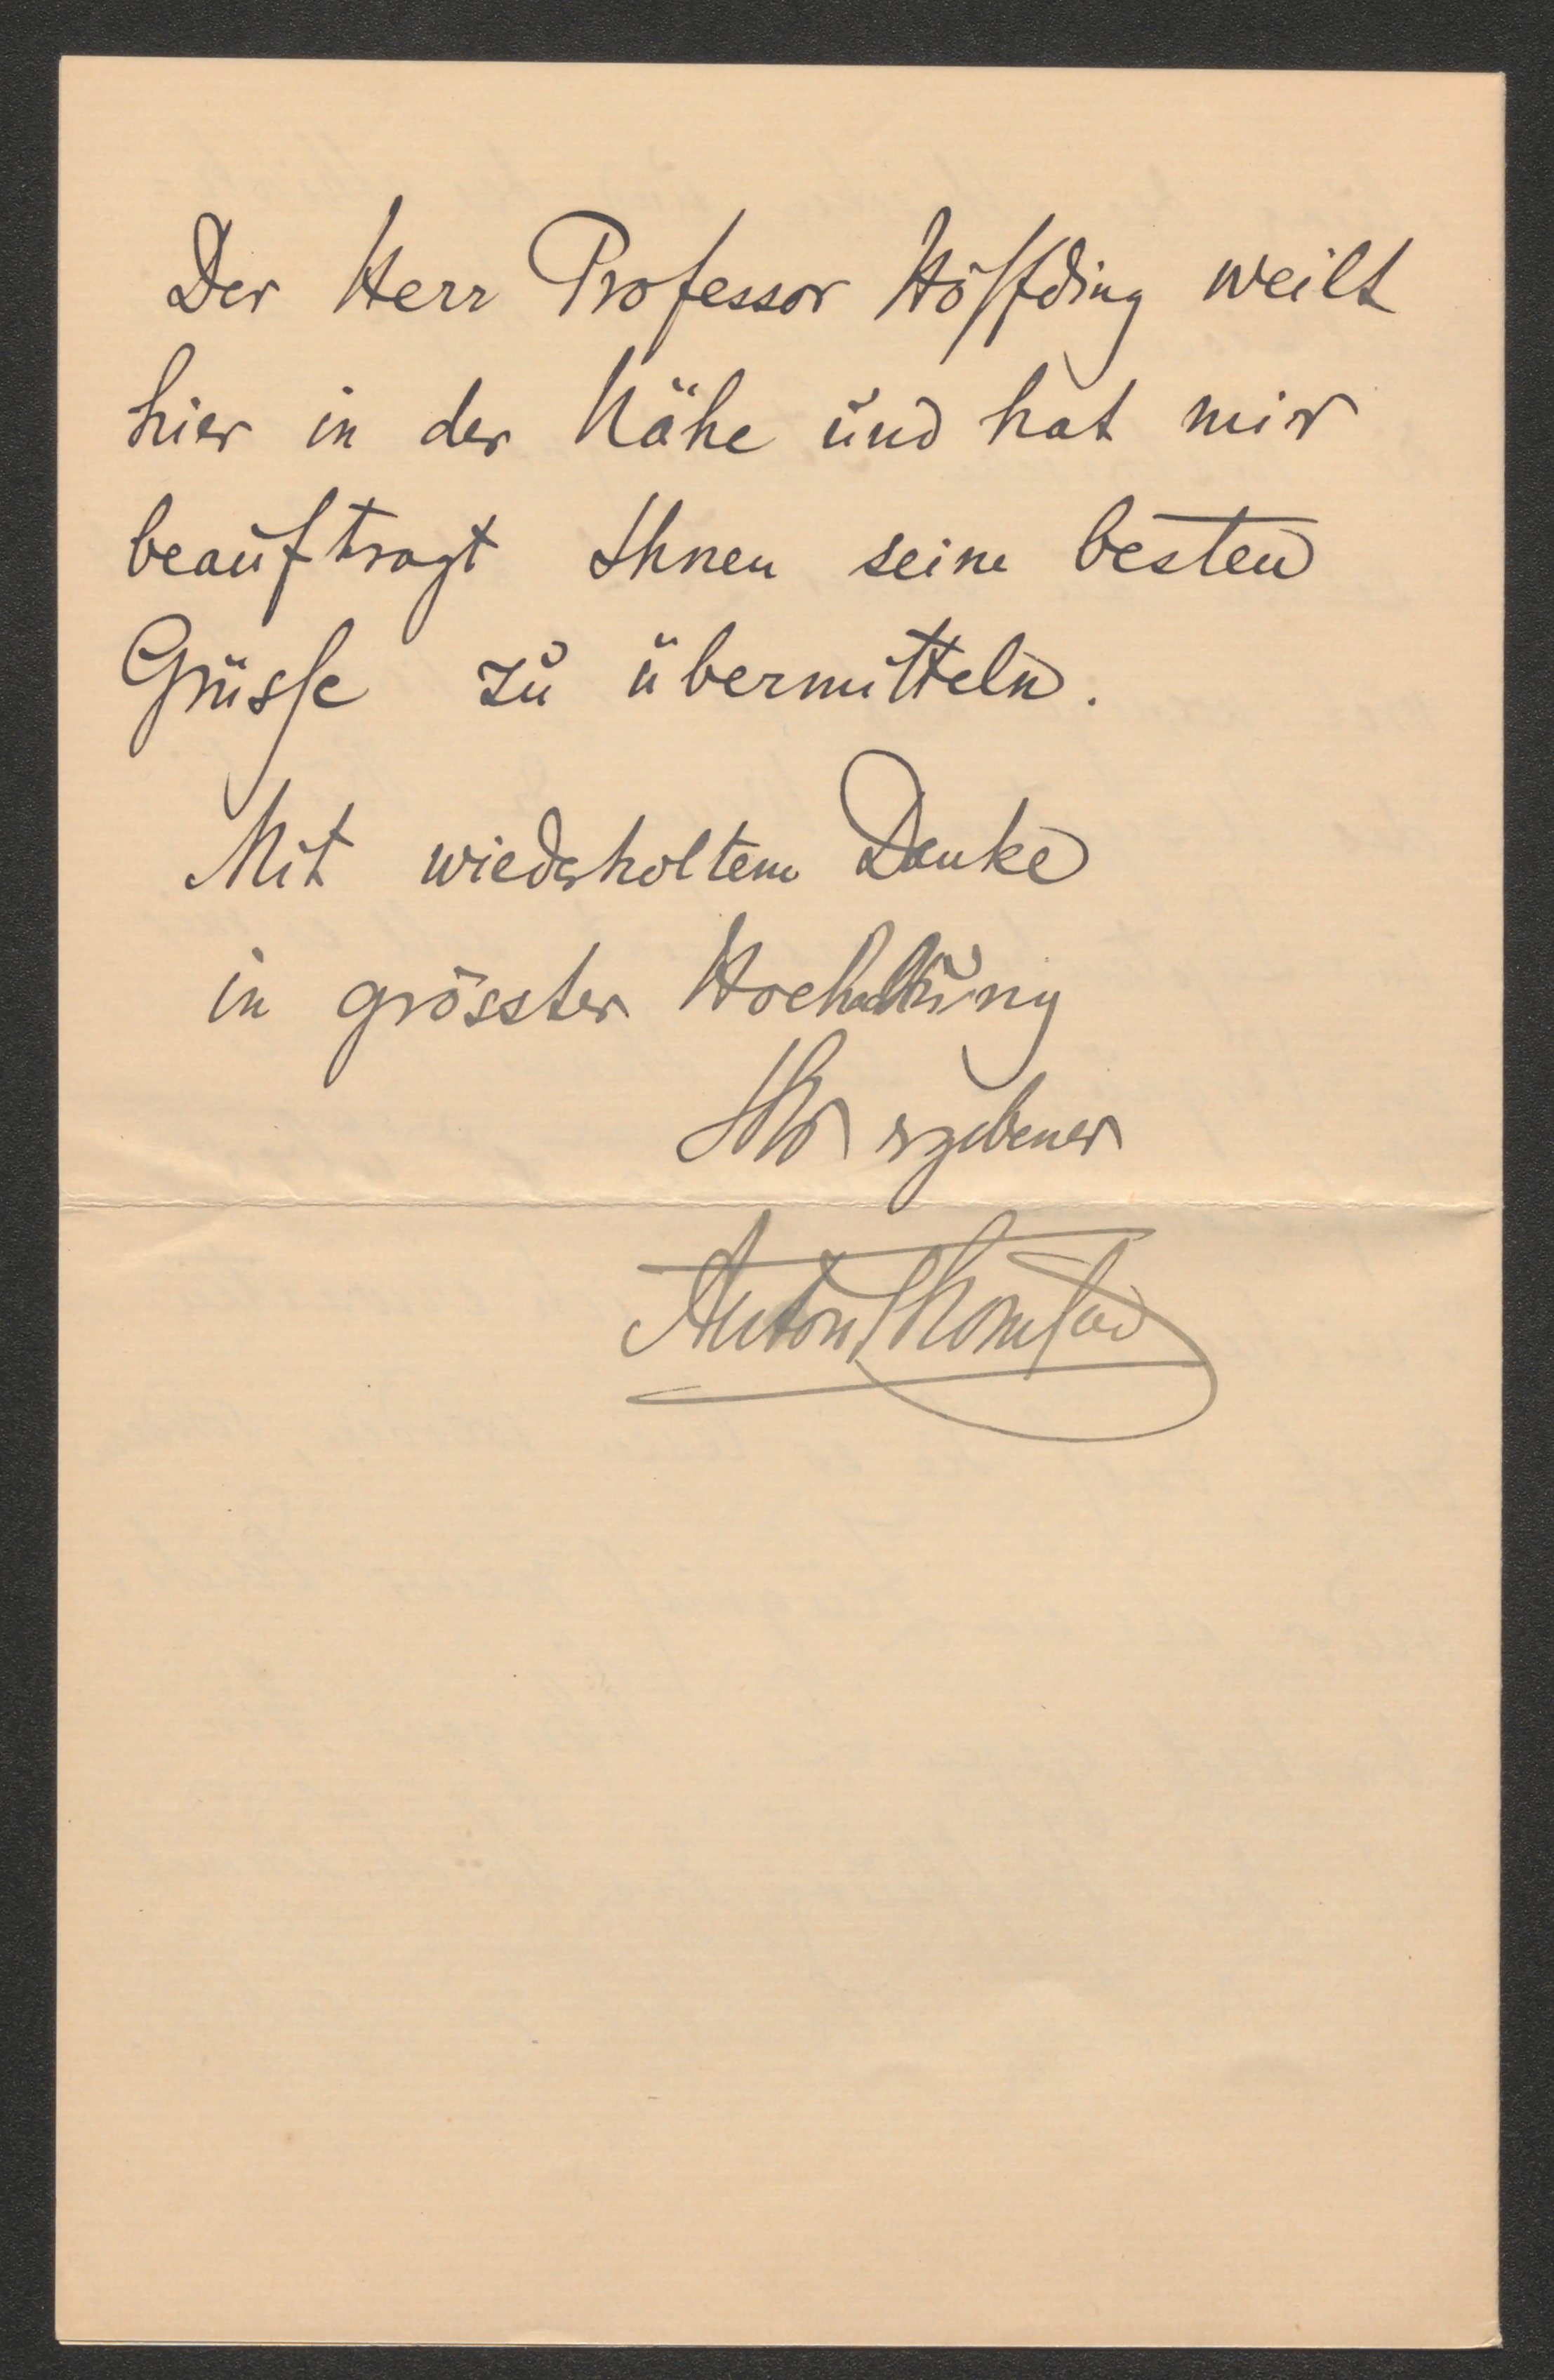 Der Herr Professor Höffding weilt
hier in der Nähe und hat mir
beauftragt Ihnen seine besten
Grüsse zu übermitteln.
Mit wiederholtem Danke
in grösster Hochachtung
Ihr ergebener
Anton Thomsen